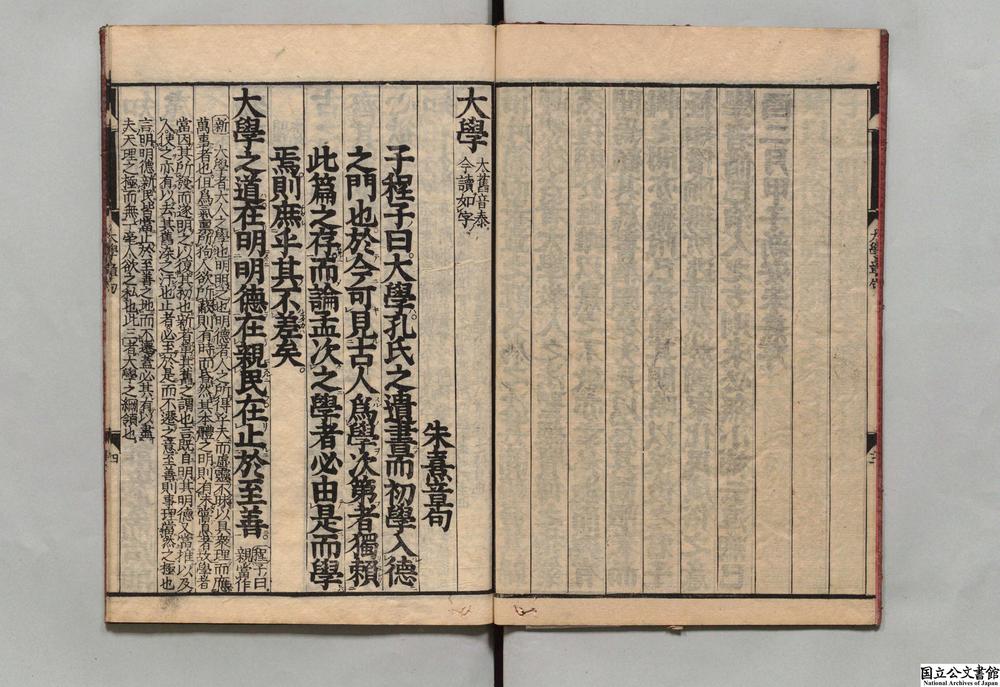 大學
大舊音泰
今讀如字
朱熹章句
子程子曰。大學。孔氏之遺書。而初學入德
之門也。於今可見古人爲學次第者。獨賴
此篇之存。而論孟次之。學者必由是而學
焉。則庶乎其不差矣。
大學之道。在明明德。在親民。在止於至善。
程子曰
親當作
新
大學者大人之學也明明之也明德者人之所得乎天而虛靈不昧以具衆理而應
萬事者也但爲氣稟所拘人欲所蔽則有時而昏然其本體之明則有未嘗息者故學者
當因其所發而遂明之以復其初也新者革其舊之謂也言既自明其明德又當推以及
人使之亦有以去其舊染之汙也止者必至於是而不遷之意至善則事理當然之極也
言明明德新民皆當止於至善之地而不遷蓋必其有以盡
夫天理之極而無一毫人欲之私也此三者大學之綱領也
大學章句
四
大學章句
三
国立公文書館
National Archives of Japan